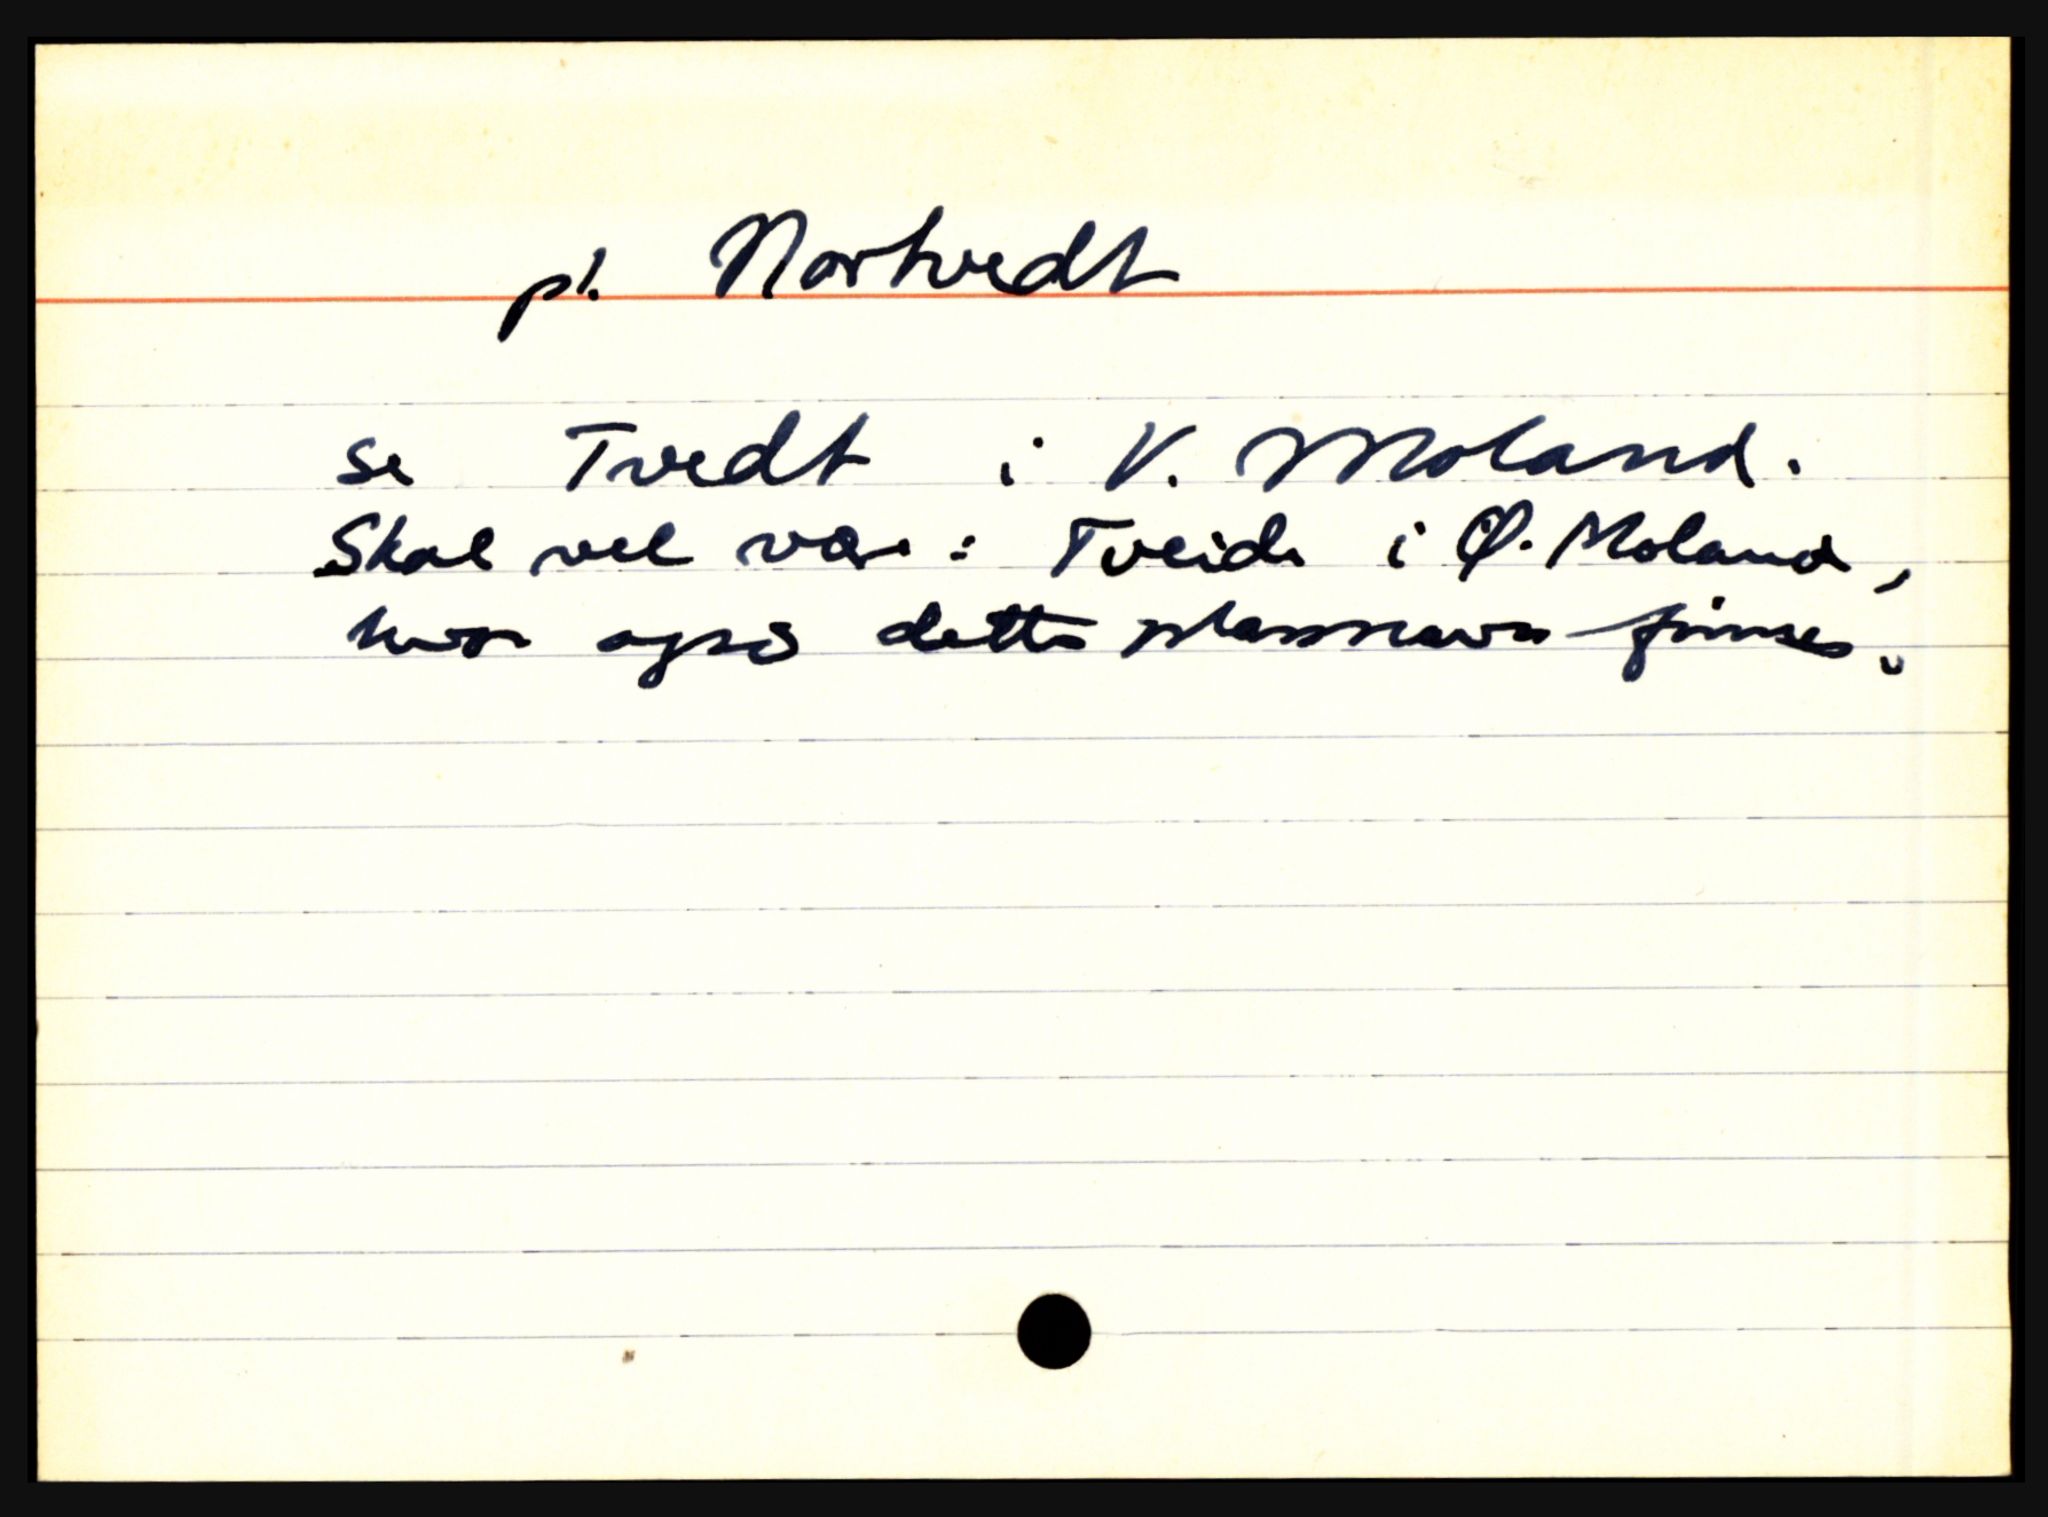 pl. Nortvedt
se Tvedt i V. Moland.
Skal vel være: Tveide i Ø. Moland,
hvor også dette plassnavn finnes.